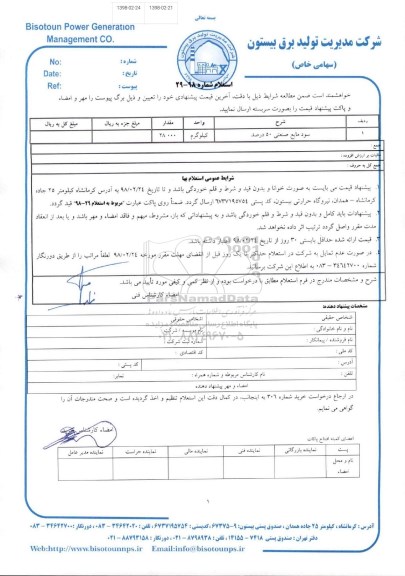 1398:02:24 1398:02:21
بسمه تعالی
Bisotoun Power Generation
Management CO.
شرکت مدیریت تولید برق بیستون
(سهامی خاص)
No: شماره :
Date: تاریخ :
Ref: پیوست :
استعلام شماره ۹۸-۲۹
خواهشمند است ضمن مطالعه شرایط ذیل با دقت، آخرین قیمت پیشنهادی خود را تعیین و ذیل برگ پیوست را مهر و امضاء
و پاکت پیشنهاد قیمت را بصورت سربسته ارسال نمایید.
ردیف شرح واحد مقدار مبلغ جزء به ریال مبلغ کل به ریال
۱ سود مایع صنعتی ۵۰ درصد کیلوگرم ۲۸۰۰۰
مالیات بر ارزش افزوده :
مبلغ کل به حروف :
شرایط عمومی استعلام بها
۱. پیشنهاد قیمت می بایست به صورت خوانا و بدون قید و شرط و قلم خوردگی باشد و تا تاریخ ۹۸/۰۲/۲۴ به آدرس کرمانشاه کیلومتر ۲۵ جاده
کرمانشاه - همدان، نیروگاه حرارتی بیستون، کد پستی ۶۷۳۷۱۹۵۷۵۴ ارسال گردد. ضمناً روی پاکت عبارت "مربوط به استعلام ۲۹-۹۸" قید گردد.
۲. پیشنهادات باید کامل و بدون قید و شرط و قلم خوردگی باشد و به پیشنهاداتی که باز، مشروط، مبهم و فاقد امضاء و مهر باشد و یا بعد از انقضاء
مدت مقرر واصل گردد ترتیب اثر داده نخواهد شد.
۳. قیمت ارائه شده حداقل بایستی ۳۰ روز از تاریخ ۹۸/۰۲/۲۴ اعتبار داشته باشد.
۴. در صورت عدم تمایل به شرکت در استعلام حداقل تا یک روز قبل از انقضای مهلت مقرر مورخه ۹۸/۰۲/۲۴ لطفاً مراتب را از طریق دورنگار
شماره ۳۴۶۴۲۷۰۰ - ۰۸۳ به اطلاع این شرکت برسانید.
شرح و مشخصات مندرج در فرم استعلام مطابق با درخواست بوده و از نظر کمی و کیفی مورد تأیید می باشد.
امضاء کارشناس فنی
ParsNamadData
۰۲۱-۸۸۳۴۹۶۷۰-۵
مشخصات پیشنهاد دهنده
شخص حقیقی اشخاص حقوقی
نام و نام خانوادگی :
نام فروشنده / پیمانکار : شماره ثبت شرکت :
کد ملی : کد اقتصادی :
آدرس : کد پستی :
تلفن : نام کارشناس مربوطه و شماره همراه : نمابر :
امضاء و مهر پیشنهاد دهنده
در ارجاع درخواست خرید شماره ۳۰۶ به اینجانب، در کمال دقت این استعلام تنظیم و اخذ گردیده است و صحت مندوجات آن را
گواهی می نمایم.
امضاء کارشناس خرید
امضای کمیته افتتاح پاکات
پست نماینده بازرگانی نماینده فنی نماینده مالی نماینده حراست نماینده مدیر عامل
نام و محل
امضاء
۱
Web:http://www.bisotounnps.ir Email:info@bisotounnps.ir